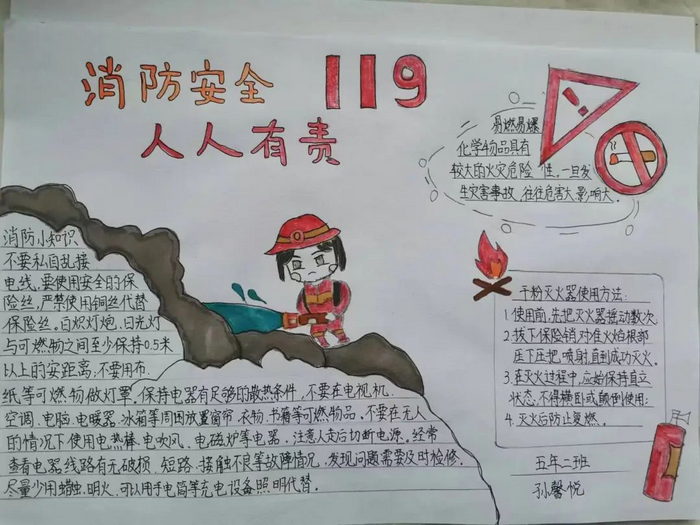 消防安全 119
人人有责
易燃易爆
化学物品具有
较大的火灾危险性,一旦发
生灾害事故,往往危害大影响大。
消防小知识
不要私自乱接
电线,要使用安全的保
险丝,严禁使用铜丝代替
保险丝,白炽灯炮、日光灯
与可燃物之间至少保持0.5米
以上的安距离,不要用布.
纸,等可燃物做灯罩,保持电器有足够的散热条件,不要在电视机.
空调.电脑.电暖器.冰箱等周围放置窗帘.衣物.书籍等可燃物品.不要在无人
的情况下使用电热棒.电吹风、电磁炉等电器.注意人走后切断电源.经常
查看电器线路有无破损.短路.接触不良等故障情况.发现问题需要及时检修.
尽量少用蜡烛.明火,可以用手电筒等充电设备照明代替.
干粉灭火器使用方法:
1.使用前,先把灭火器摇动数次.
2.拔下保险销对准火焰根部
压下压把,喷射直到成功灭火.
3.在灭火过程中,应始终保持直立
状态.不得横卧或颠倒使用;
4.灭火后防止复燃.
五年二班
孙馨悦